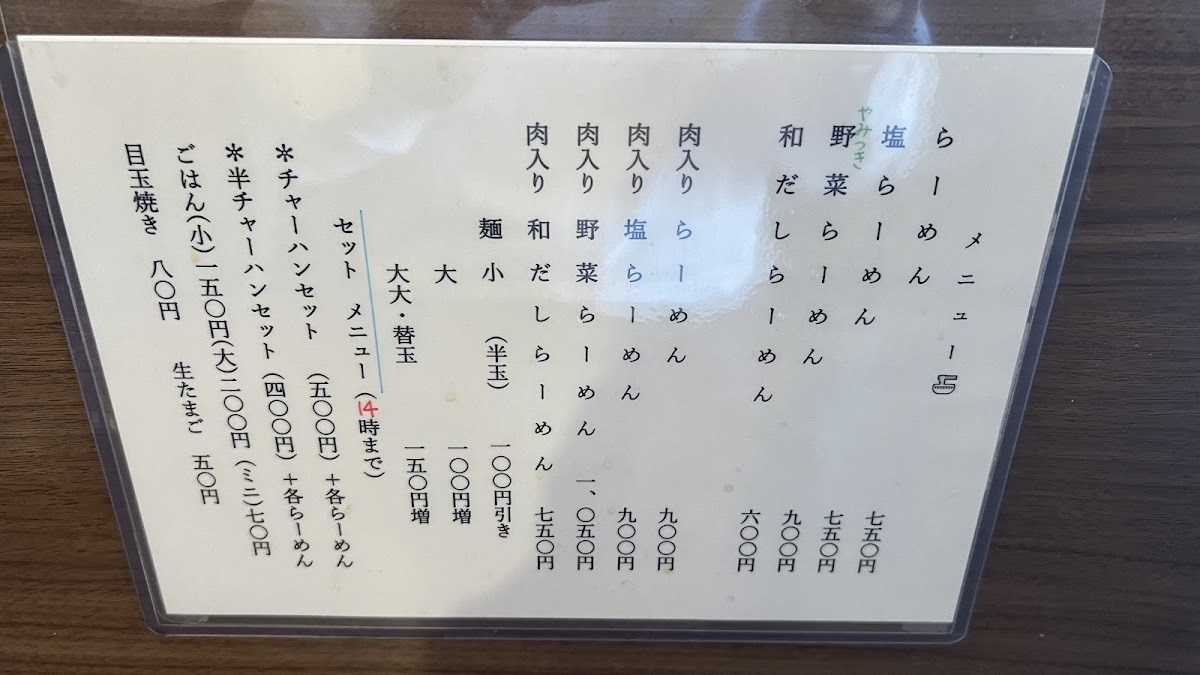 メニュー
らーめん 七五〇円
塩らーめん 七五〇円
やみつき
野菜らーめん 九〇〇円
和だしらーめん 六〇〇円
肉入り らーめん 九〇〇円
肉入り 塩らーめん 九〇〇円
肉入り 野菜らーめん 一、〇五〇円
肉入り 和だしらーめん 七五〇円
麺 小 (半玉) 一〇〇円引き
大 一〇〇円増
大大・替玉 一五〇円増
セット メニュー (14時まで)
*チャーハンセット (五〇〇円)+各らーめん
*半チャーハンセット (四〇〇円)+各らーめん
ごはん(小)一五〇円(大)二〇〇円(ミニ)七〇円
目玉焼き 八〇円 生たまご 五〇円